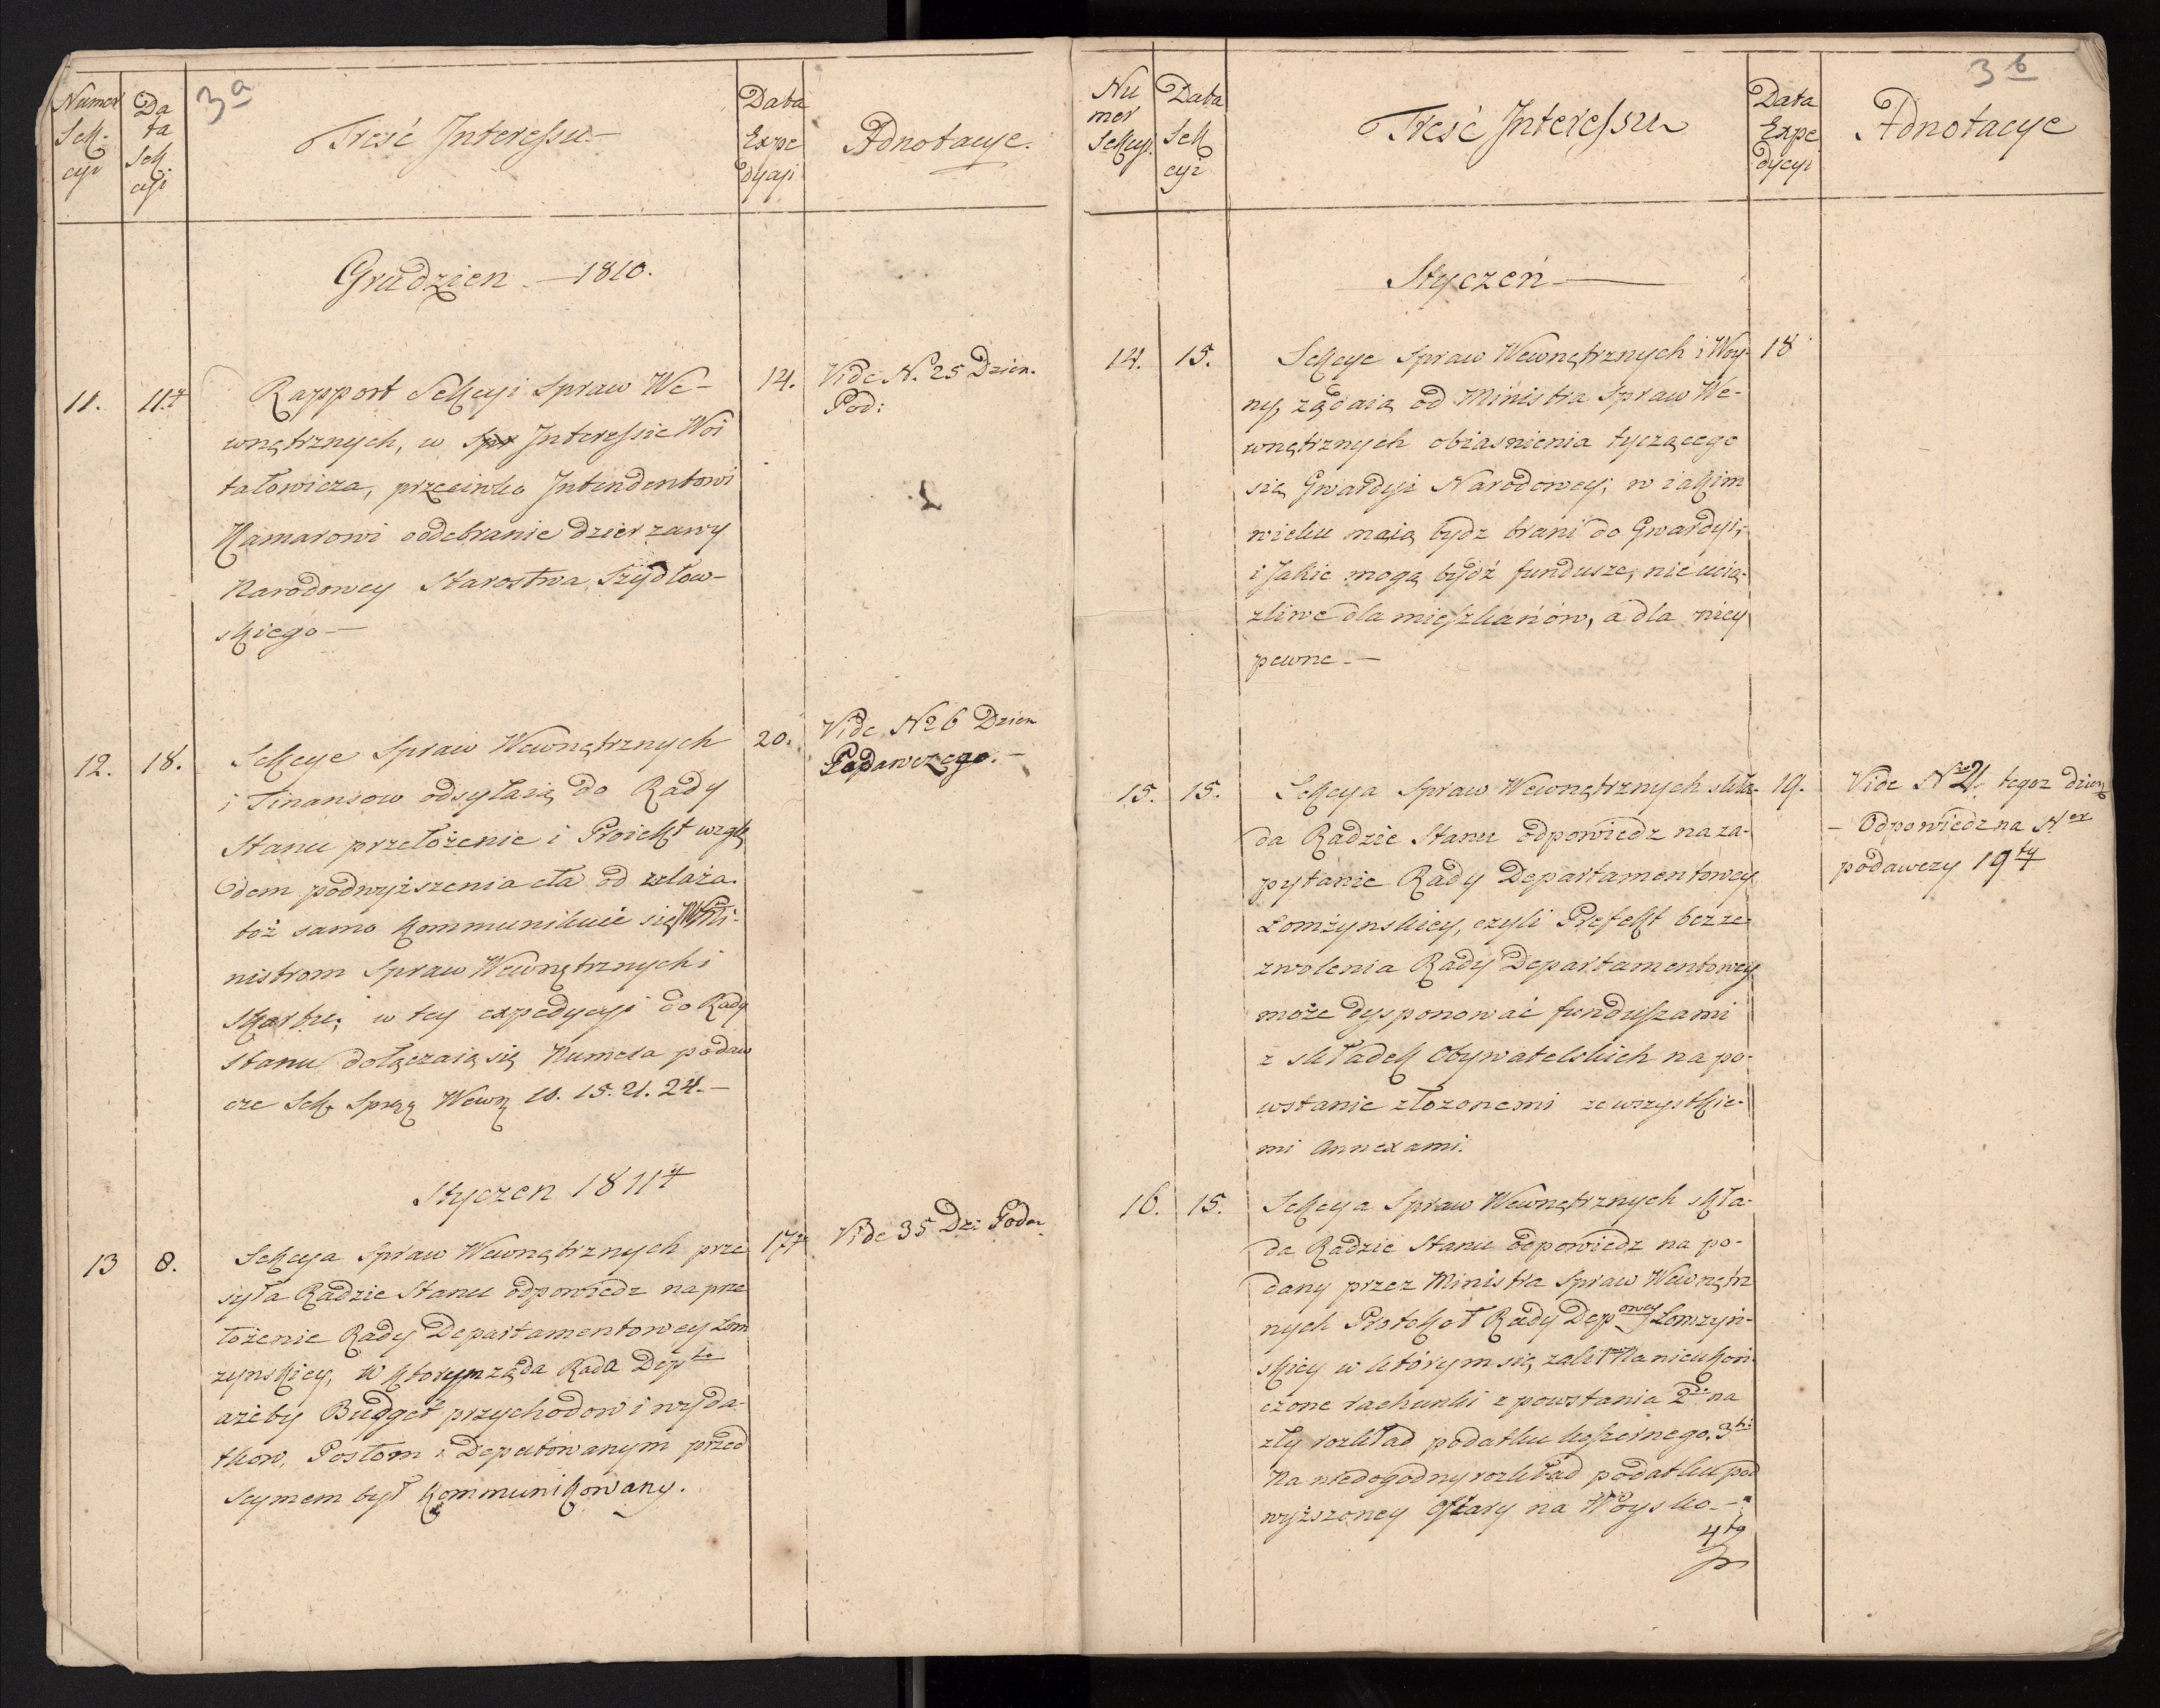 3a
Numer Sekcyi
Data Sekcyi
Treść Interessu.
Data Expedycyi
Adnotacye.
Grudzien — 1810.
11. 11.
Rapport Sekcyi Spraw We-
wnętrznych, w Interessie Woi
tałowicza, przeciwko Intendentowi
Kamarowi o odebranie dzierzawy
Narodowey Starostwa Szydłow-
skiego —
14.
Vide N. 25 Dzien.
Pod:
12. 18.
Sekcye Spraw Wewnętrznych
i Finansow odsyłaią do Rady
Stanu przełożenie i Proiekt wzglę
dem podwyższenia cła od żelaza.
toż samo kommunikuie się Mi-
nistrom Spraw Wewnętrznych i
Skarbu; w tey expedycyi do Rady
Stanu dołączaią się Numera podaw
cze Sek. Spra Wewn 10. 15. 21. 24. —
20.
Vide No 6 Dzien
Podawczego. —
Styczen 1811
13 8.
Sekcya Spraw Wewnętrznych prze
syła Radzie Stanu odpowiedz na prze
łożenie Rady Departamentowey Łom
zynskiey, w ktorym żąda Rada Depta
ażeby Budget przychodow i wyda-
tkow, Posłom i Deputowanym przed
Seymem był kommunikowany.
17
Vide 35 Dz: Poda
3b
Numer Sekcyi.
Data Sekcyi
Treść Interessu
Data Expedycyi
Adnotacye
Styczeń —
14. 15.
Sekcye Spraw Wewnętrznych i Woy-
ny, żądaią od Ministra Spraw We-
wnętrznych obiasnienia tyczącego
się Gwardyi Narodowey; w iakim
wieku maią bydz brani do Gwardyi,
i Jakie mogą bydź fundusze, nie ucią-
zliwe dla mieszkańów, a dla niey
pewne —
18
15. 15.
Sekcya Spraw Wewnętrznych skła-
da Radzie Stanu odpowiedz na za-
pytanie Rady Departamentowey
Łomżynskiey, czyli Prefekt bez ze-
zwolenia Rady Departamentowey
może dysponować funduszami
z składek Obywatelskich na po-
wstanie złozonemi ze wszystkie-
mi Annexami.
19.
Vide N 21. tegoz dzien
— Odpowiedz na Ner
podawczy 19ty
16. 15.
Sekcya Spraw Wewnętrznych skła-
da Radzie Stanu odpowiedz na po-
dany przez Ministra Spraw Wewnętrz
nych Protokoł Rady Depowey Łomzyń-
skiey w którym się żali 1mo Na nieukoń-
czone rachunki z powstania 2do na
zły rozkład podatku koszernego. 3tio
Na niedogodny rozkład podatku pod
wyższoney ofiary na Woysko. —
4to